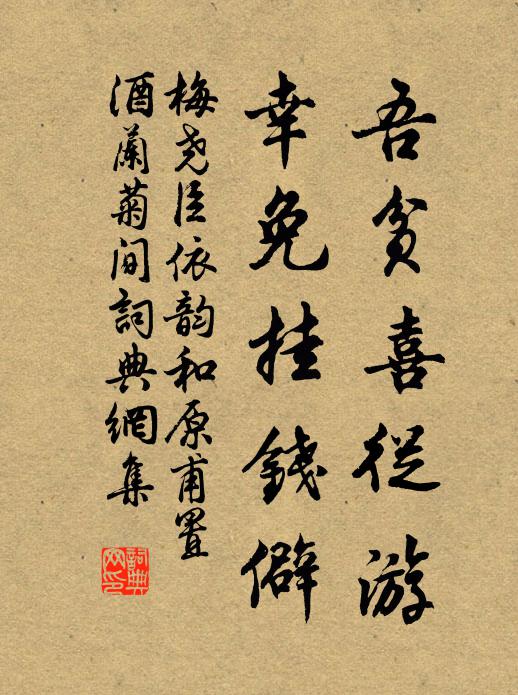 吾貧喜從游
幸免挂錢僻
梅堯臣依韵和原甫置
酒蘭菊間詞典網集
詞典
网印